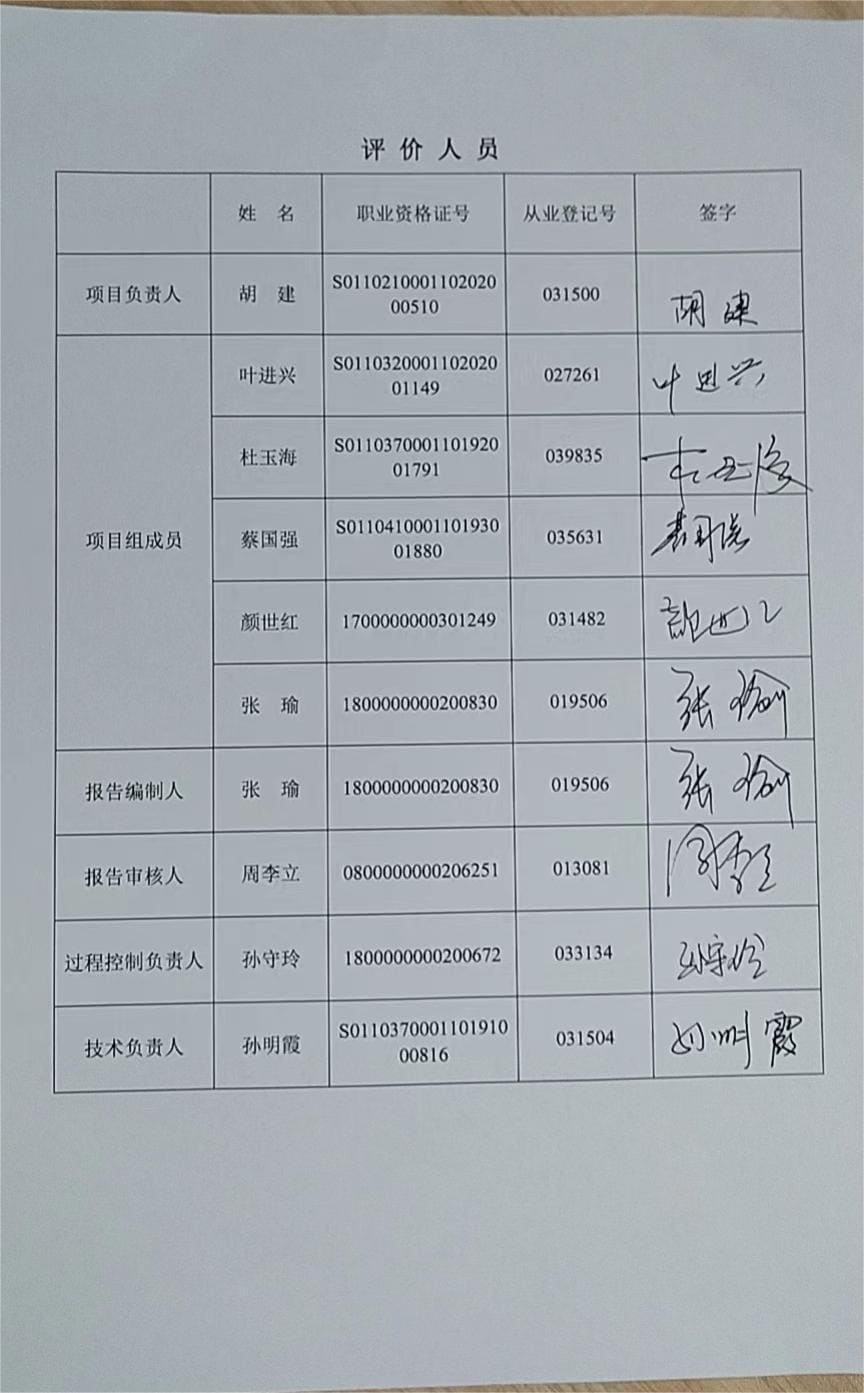 评价人员
姓 名 职业资格证号 从业登记号 签字
项目负责人 胡 建 S0110210001102020 031500 胡建
00510
叶进兴 S0110320001102020 027261 叶进兴
01149
杜玉海 S0110370001101920 039835
01791
项目组成员 蔡国强 S0110410001101930 035631
01880
颜世红 1700000000301249 031482
张 瑜 1800000000200830 019506 张瑜
报告编制人 张 瑜 1800000000200830 019506 张瑜
报告审核人 周李立 0800000000206251 013081 周李立
过程控制负责人 孙守玲 1800000000200672 033134 孙守玲
技术负责人 孙明霞 S0110370001101910 031504 孙明霞
00816